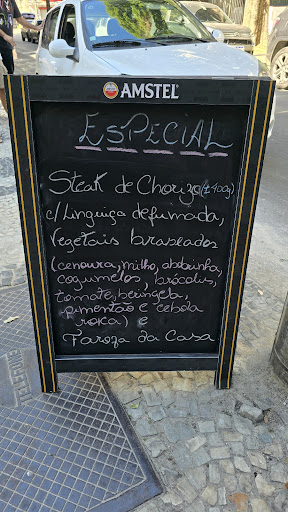 AMSTEL
ESPECIAL
Steak de Chorizo (±400g)
c/ Linguiça defumada,
Vegetais braseados
(cenoura, milho, abobrinha,
cogumelos, brócolis,
tomate, beringela,
pimentão e cebola
roxa) e
Farofa da Casa